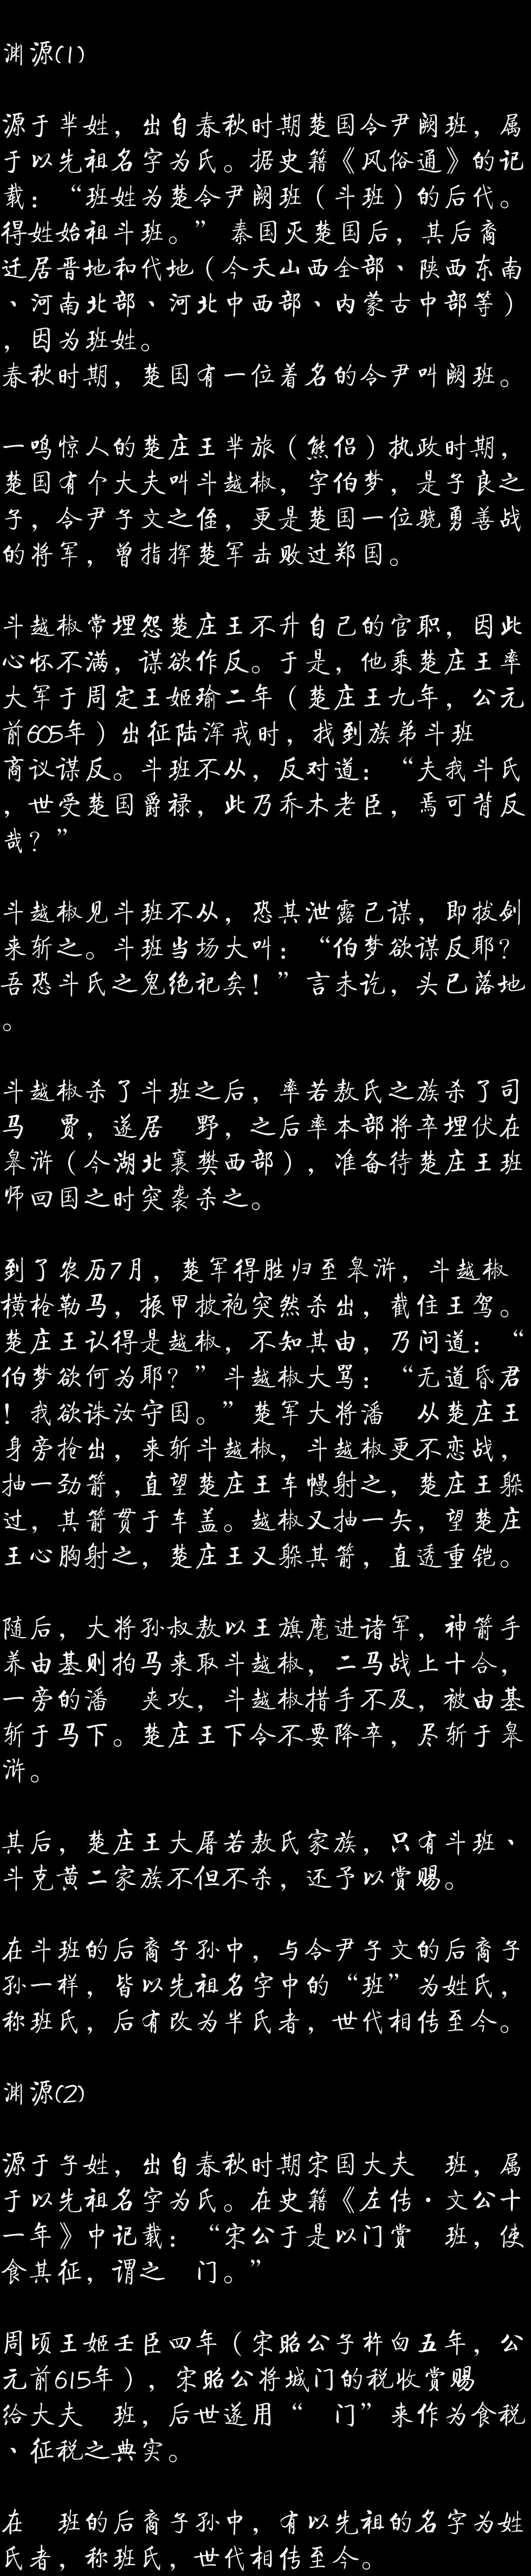 渊源(1)
源于芈姓，出自春秋时期楚国令尹阙班，属
于以先祖名字为氏。据史籍《风俗通》的记
载：“班姓为楚令尹阙班（斗班）的后代。
得姓始祖斗班。” 秦国灭楚国后，其后裔
迁居晋地和代地（今天山西全部、陕西东南
、河南北部、河北中西部、内蒙古中部等）
，因为班姓。
春秋时期，楚国有一位着名的令尹叫阙班。
一鸣惊人的楚庄王芈旅（熊侣）执政时期，
楚国有个大夫叫斗越椒，字伯梦，是子良之
子，令尹子文之侄，更是楚国一位骁勇善战
的将军，曾指挥楚军击败过郑国。
斗越椒常埋怨楚庄王不升自己的官职，因此
心怀不满，谋欲作反。于是，他乘楚庄王率
大军于周定王姬瑜二年（楚庄王九年，公元
前605年）出征陆浑戎时，找到族弟斗班
商议谋反。斗班不从，反对道：“夫我斗氏
，世受楚国爵禄，此乃乔木老臣，焉可背反
哉？”
斗越椒见斗班不从，恐其泄露己谋，即拔剑
来斩之。斗班当场大叫：“伯梦欲谋反耶？
吾恐斗氏之鬼绝祀矣！”言未讫，头已落地
。
斗越椒杀了斗班之后，率若敖氏之族杀了司
马　贾，遂居　野，之后率本部将卒埋伏在
皋浒（今湖北襄樊西部），准备待楚庄王班
师回国之时突袭杀之。
到了农历7月，楚军得胜归至皋浒，斗越椒
横枪勒马，振甲披袍突然杀出，截住王驾。
楚庄王认得是越椒，不知其由，乃问道：“
伯梦欲何为耶？”斗越椒大骂：“无道昏君
！我欲诛汝守国。”楚军大将潘　从楚庄王
身旁抢出，来斩斗越椒，斗越椒更不恋战，
抽一劲箭，直望楚庄王车幔射之，楚庄王躲
过，其箭贯于车盖。越椒又抽一矢，望楚庄
王心胸射之，楚庄王又躲其箭，直透重铠。
随后，大将孙叔敖以王旗麾进诸军，神箭手
养由基则拍马来取斗越椒，二马战上十合，
一旁的潘　夹攻，斗越椒措手不及，被由基
斩于马下。楚庄王下令不要降卒，尽斩于皋
浒。
其后，楚庄王大屠若敖氏家族，只有斗班、
斗克黄二家族不但不杀，还予以赏赐。
在斗班的后裔子孙中，与令尹子文的后裔子
孙一样，皆以先祖名字中的“班”为姓氏，
称班氏，后有改为半氏者，世代相传至今。
渊源(2)
源于子姓，出自春秋时期宋国大夫　班，属
于以先祖名字为氏。在史籍《左传·文公十
一年》中记载：“宋公于是以门赏　班，使
食其征，谓之　门。”
周顷王姬壬臣四年（宋昭公子杵臼五年，公
元前615年），宋昭公将城门的税收赏赐
给大夫　班，后世遂用“　门”来作为食税
、征税之典实。
在　班的后裔子孙中，有以先祖的名字为姓
氏者，称班氏，世代相传至今。